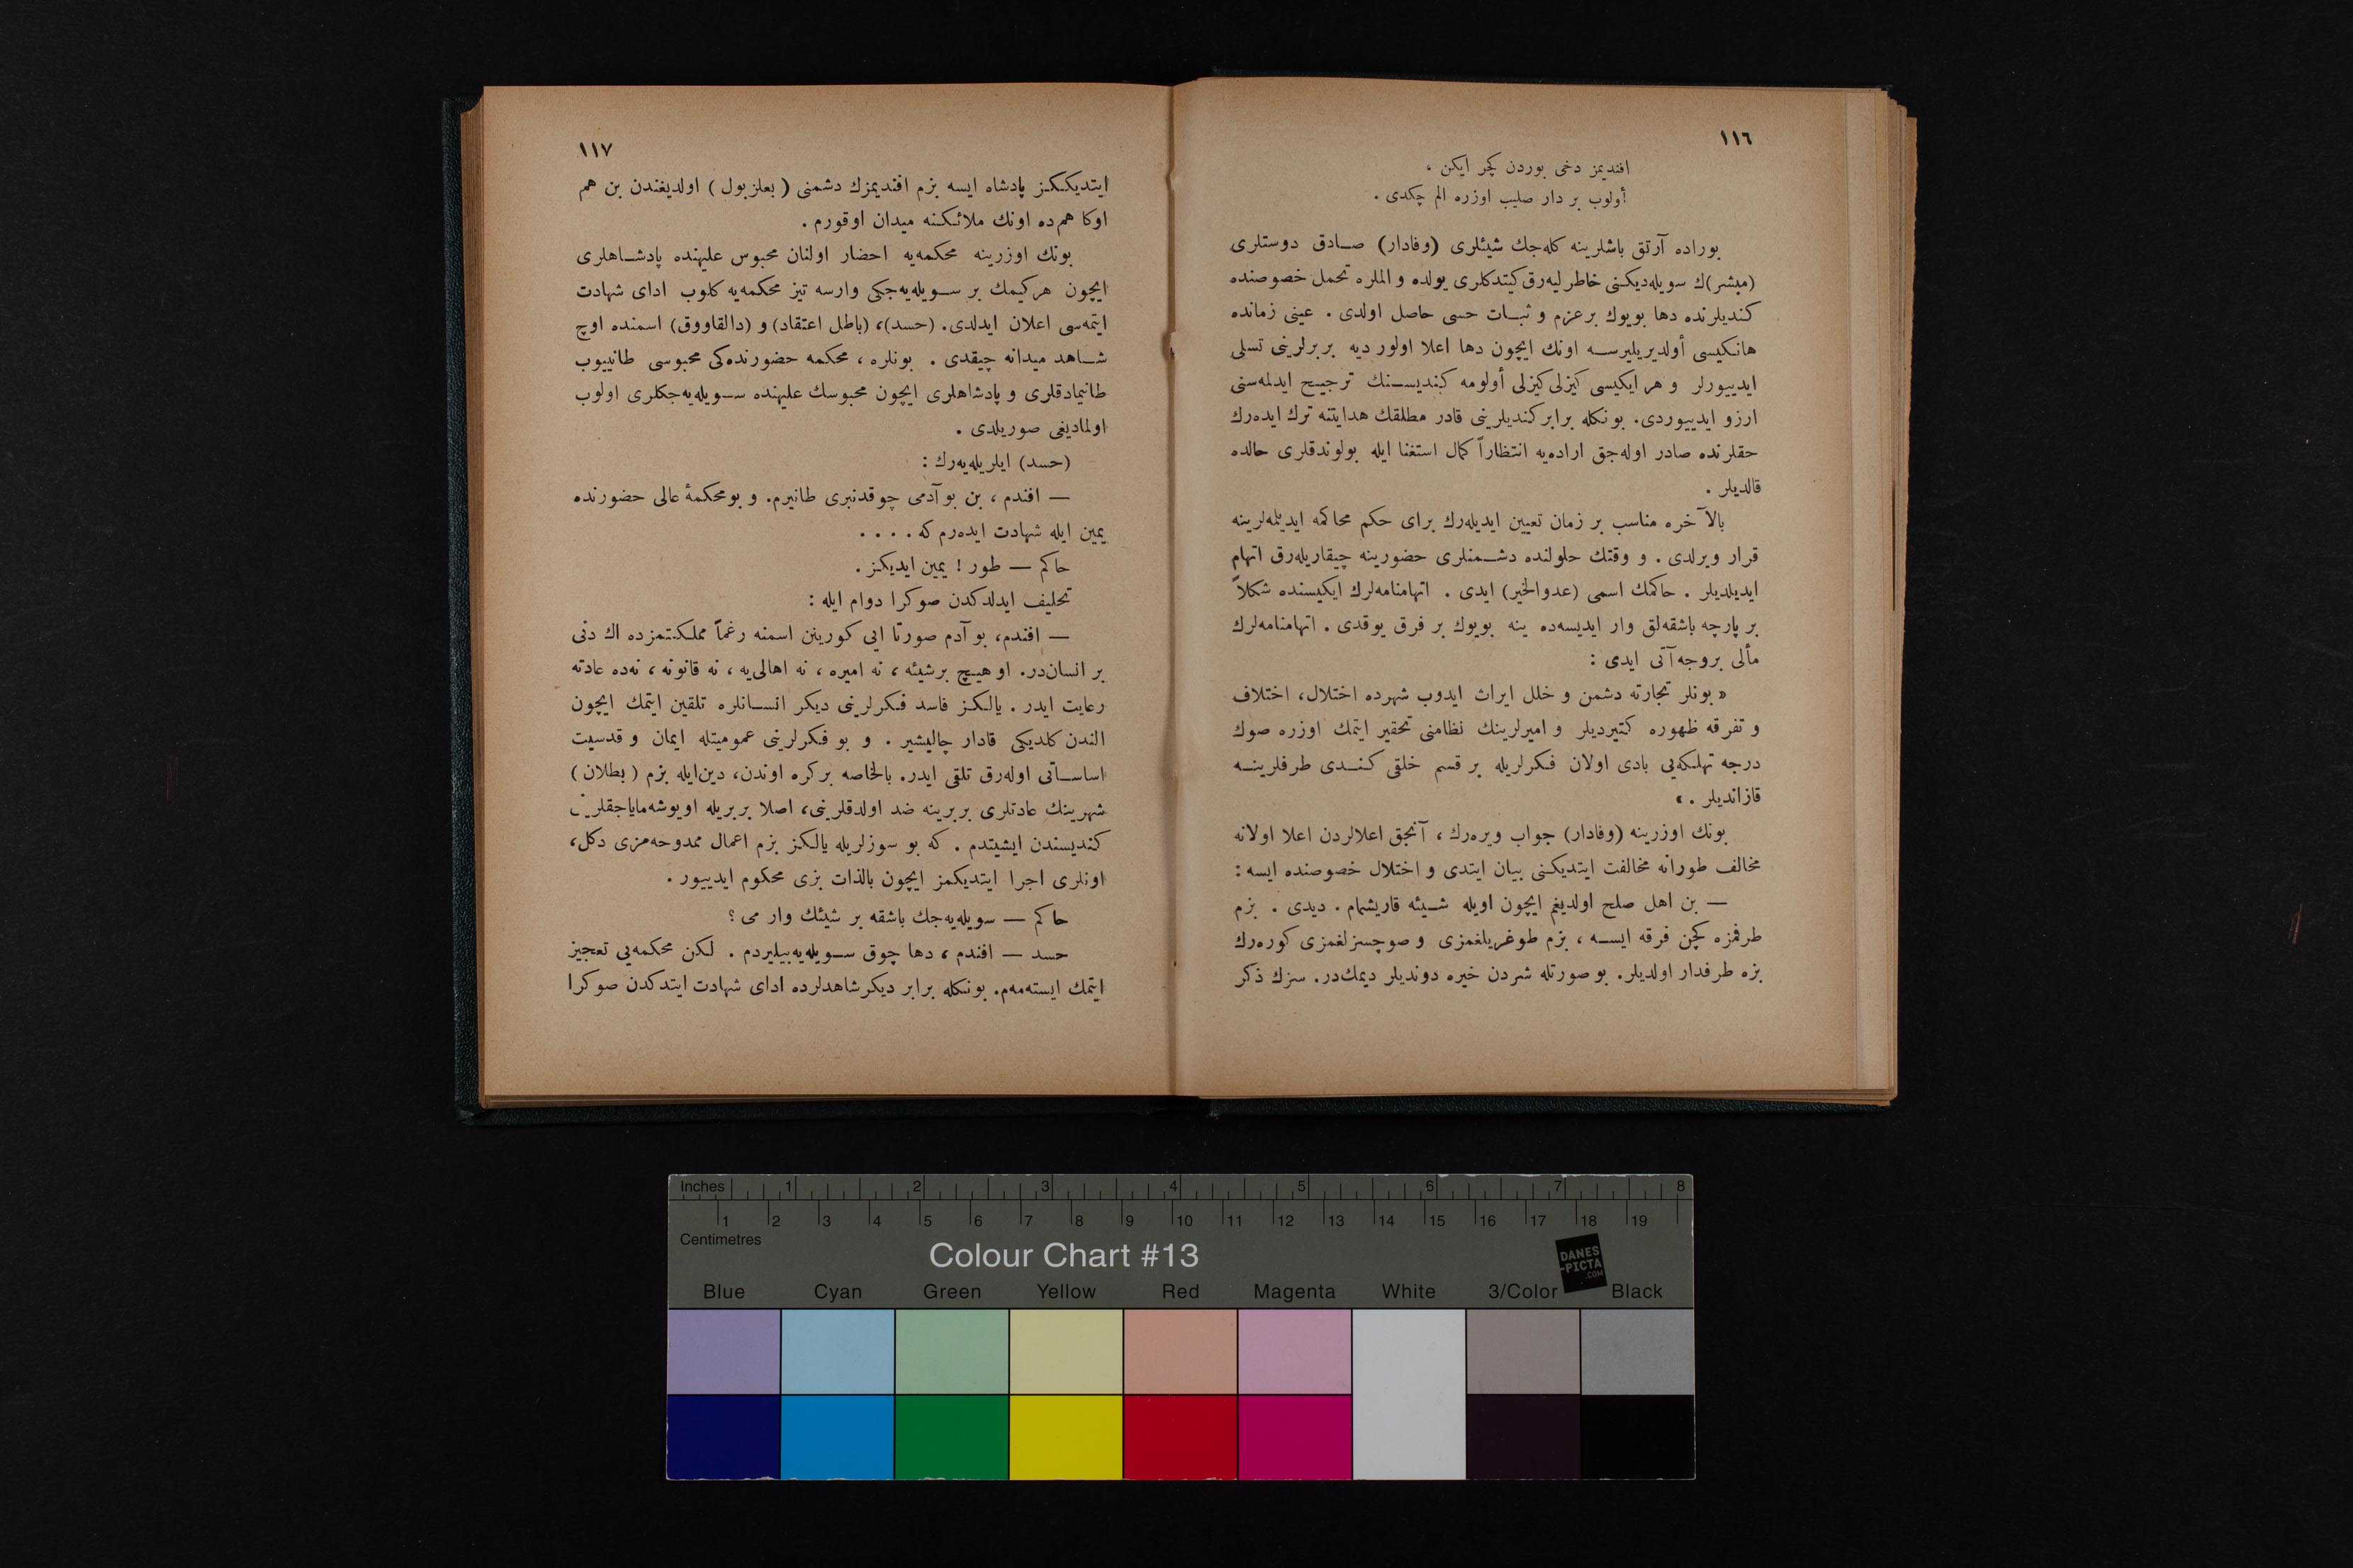 ١١٦
افنديمز دخى بوردن كچر ايكن ،
أولوب بر دار صليب اوزره الم چكدى .
بوراده آرتق باشلرينه كله‌جك شيئلرى (وفادار) صادق دوستلرى
(مبشر)ك سويله‌ديكنى خاطرليه‌رق كيتدكلرى يولده و الملره تحمل خصوصنده
كنديلرنده دها بويوك بر عزم و ثبات حسى حاصل اولدى . عينى زمانده
هانكيسى أولديريليرسه اونك ايچون دها اعلا اولور ديه بربرلرينى تسلى
ايدييورلر و هر ايكيسى كيزلى كيزلى أولومه كنديسنك ترجيح ايدلمه‌سنى
ارزو ايدييوردى. بونكله برابر كنديلرينى قادر مطلقك هدايتنه ترك ايده‌رك
حقلرنده صادر اوله‌جق اراده‌يه انتظاراً كمال استغنا ايله بولوندقلرى حالده
قالديلر .
بالآخره مناسب بر زمان تعيين ايديله‌رك براى حكم محاكمه ايديلمه‌لرينه
قرار ويرلدى . و وقتك حلولنده دشمنلرى حضورينه چيقاريله‌رق اتهام
ايديلديلر . حاكمك اسمى (عدوالخير) ايدى . اتهامنامه‌لرك ايكيسنده شكلاً
بر پارچه باشقه‌لق وار ايديسه‌ده ينه بويوك بر فرق يوقدى . اتهامنامه‌لرك
مألى بروجه آتى ايدى :
« بونلر تجارته دشمن و خلل ايراث ايدوب شهرده اختلال، اختلاف
و تفرقه ظهوره كتيرديلر و اميرلرينك نظامنى تحقير ايتمك اوزره صوك
درجه تهلكه‌يى بادى اولان فكرلريله بر قسم خلقى كندى طرفلرينه
قازانديلر . »
بونك اوزرينه (وفادار) جواب ويره‌رك ، آنجق اعلالردن اعلا اولانه
مخالف طورانه مخالفت ايتديكنى بيان ايتدى و اختلال خصوصنده ايسه :
— بن اهل صلح اولديغم ايچون اويله شيئه قاريشمام . ديدى . بزم
طرفمزه كچن فرقه ايسه ، بزم طوغريلغمزى و صوچسزلغمزى كوره‌رك
بزه طرفدار اولديلر. بو صورتله شردن خيره دونديلر ديمك‌در. سزك ذكر
١١٧
ايتديككز پادشاه ايسه بزم افنديمزك دشمنى (بعلزبول) اولديغندن بن هم
اوكا هم‌ده اونك ملائكنه ميدان اوقورم .
بونك اوزرينه محكمه‌يه احضار اولنان محبوس عليهنده پادشاهلرى
ايچون هركيمك بر سويله‌يه‌جكى وارسه تيز محكمه‌يه كلوب اداى شهادت
ايتمه‌سى اعلان ايدلدى. (حسد)، (باطل اعتقاد) و (دالقاووق) اسمنده اوچ
شاهد ميدانه چيقدى . بونلره ، محكمه حضورنده‌كى محبوسى طانييوب
طانيمادقلرى و پادشاهلرى ايچون محبوسك عليهنده سويله‌يه‌جكلرى اولوب
اولماديغى صوريلدى .
(حسد) ايلريله‌يه‌رك :
— افندم ، بن بو آدمى چوقدنبرى طانيرم. و بو محكمهٔ عالى حضورنده
يمين ايله شهادت ايده‌رم كه . . . .
حاكم — طور ! يمين ايديكز .
تحليف ايدلدكدن صوكرا دوام ايله :
— افندم، بو آدم صورتا ايى كورينن اسمنه رغماً مملكتمزده اك دنى
بر انسان‌در. او هيچ برشيئه ، نه اميره ، نه اهالى‌يه ، نه قانونه ، نه‌ده عادته
رعايت ايدر . يالكز فاسد فكرلرينى ديكر انسانلره تلقين ايتمك ايچون
الندن كلديكى قادار چاليشير . و بو فكرلرينى عموميتله ايمان و قدسيت
اساساتى اوله‌رق تلقى ايدر. بالخاصه بركره اوندن، دين‌ايله بزم (بطلان)
شهرينك عادتلرى بربرينه ضد اولدقلرينى، اصلا بربريله اويوشه‌ماياجقلرينى
كنديسندن ايشيتدم . كه بو سوزلريله يالكز بزم اعمال ممدوحه‌مزى دكل،
اونلرى اجرا ايتديكمز ايچون بالذات بزى محكوم ايدييور .
حاكم — سويله‌يه‌جك باشقه بر شيئك وار مى ؟
حسد — افندم ، دها چوق سويله‌يه‌بيليردم . لكن محكمه‌يى تعجيز
ايتمك ايسته‌مه‌م. بونكله برابر ديكر شاهدلرده اداى شهادت ايتدكدن صوكرا
Inches 1 2 3 4 5 6 7 8
1 2 3 4 5 6 7 8 9 10 11 12 13 14 15 16 17 18 19
Centimetres
Colour Chart #13
DANES
-PICTA
.COM
Blue Cyan Green Yellow Red Magenta White 3/Color Black